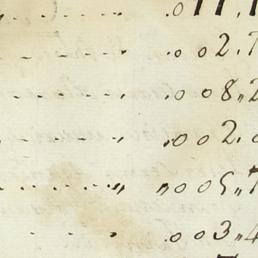 .011,1
.002.7
.008"2
.002.8
"005"7
.003"4